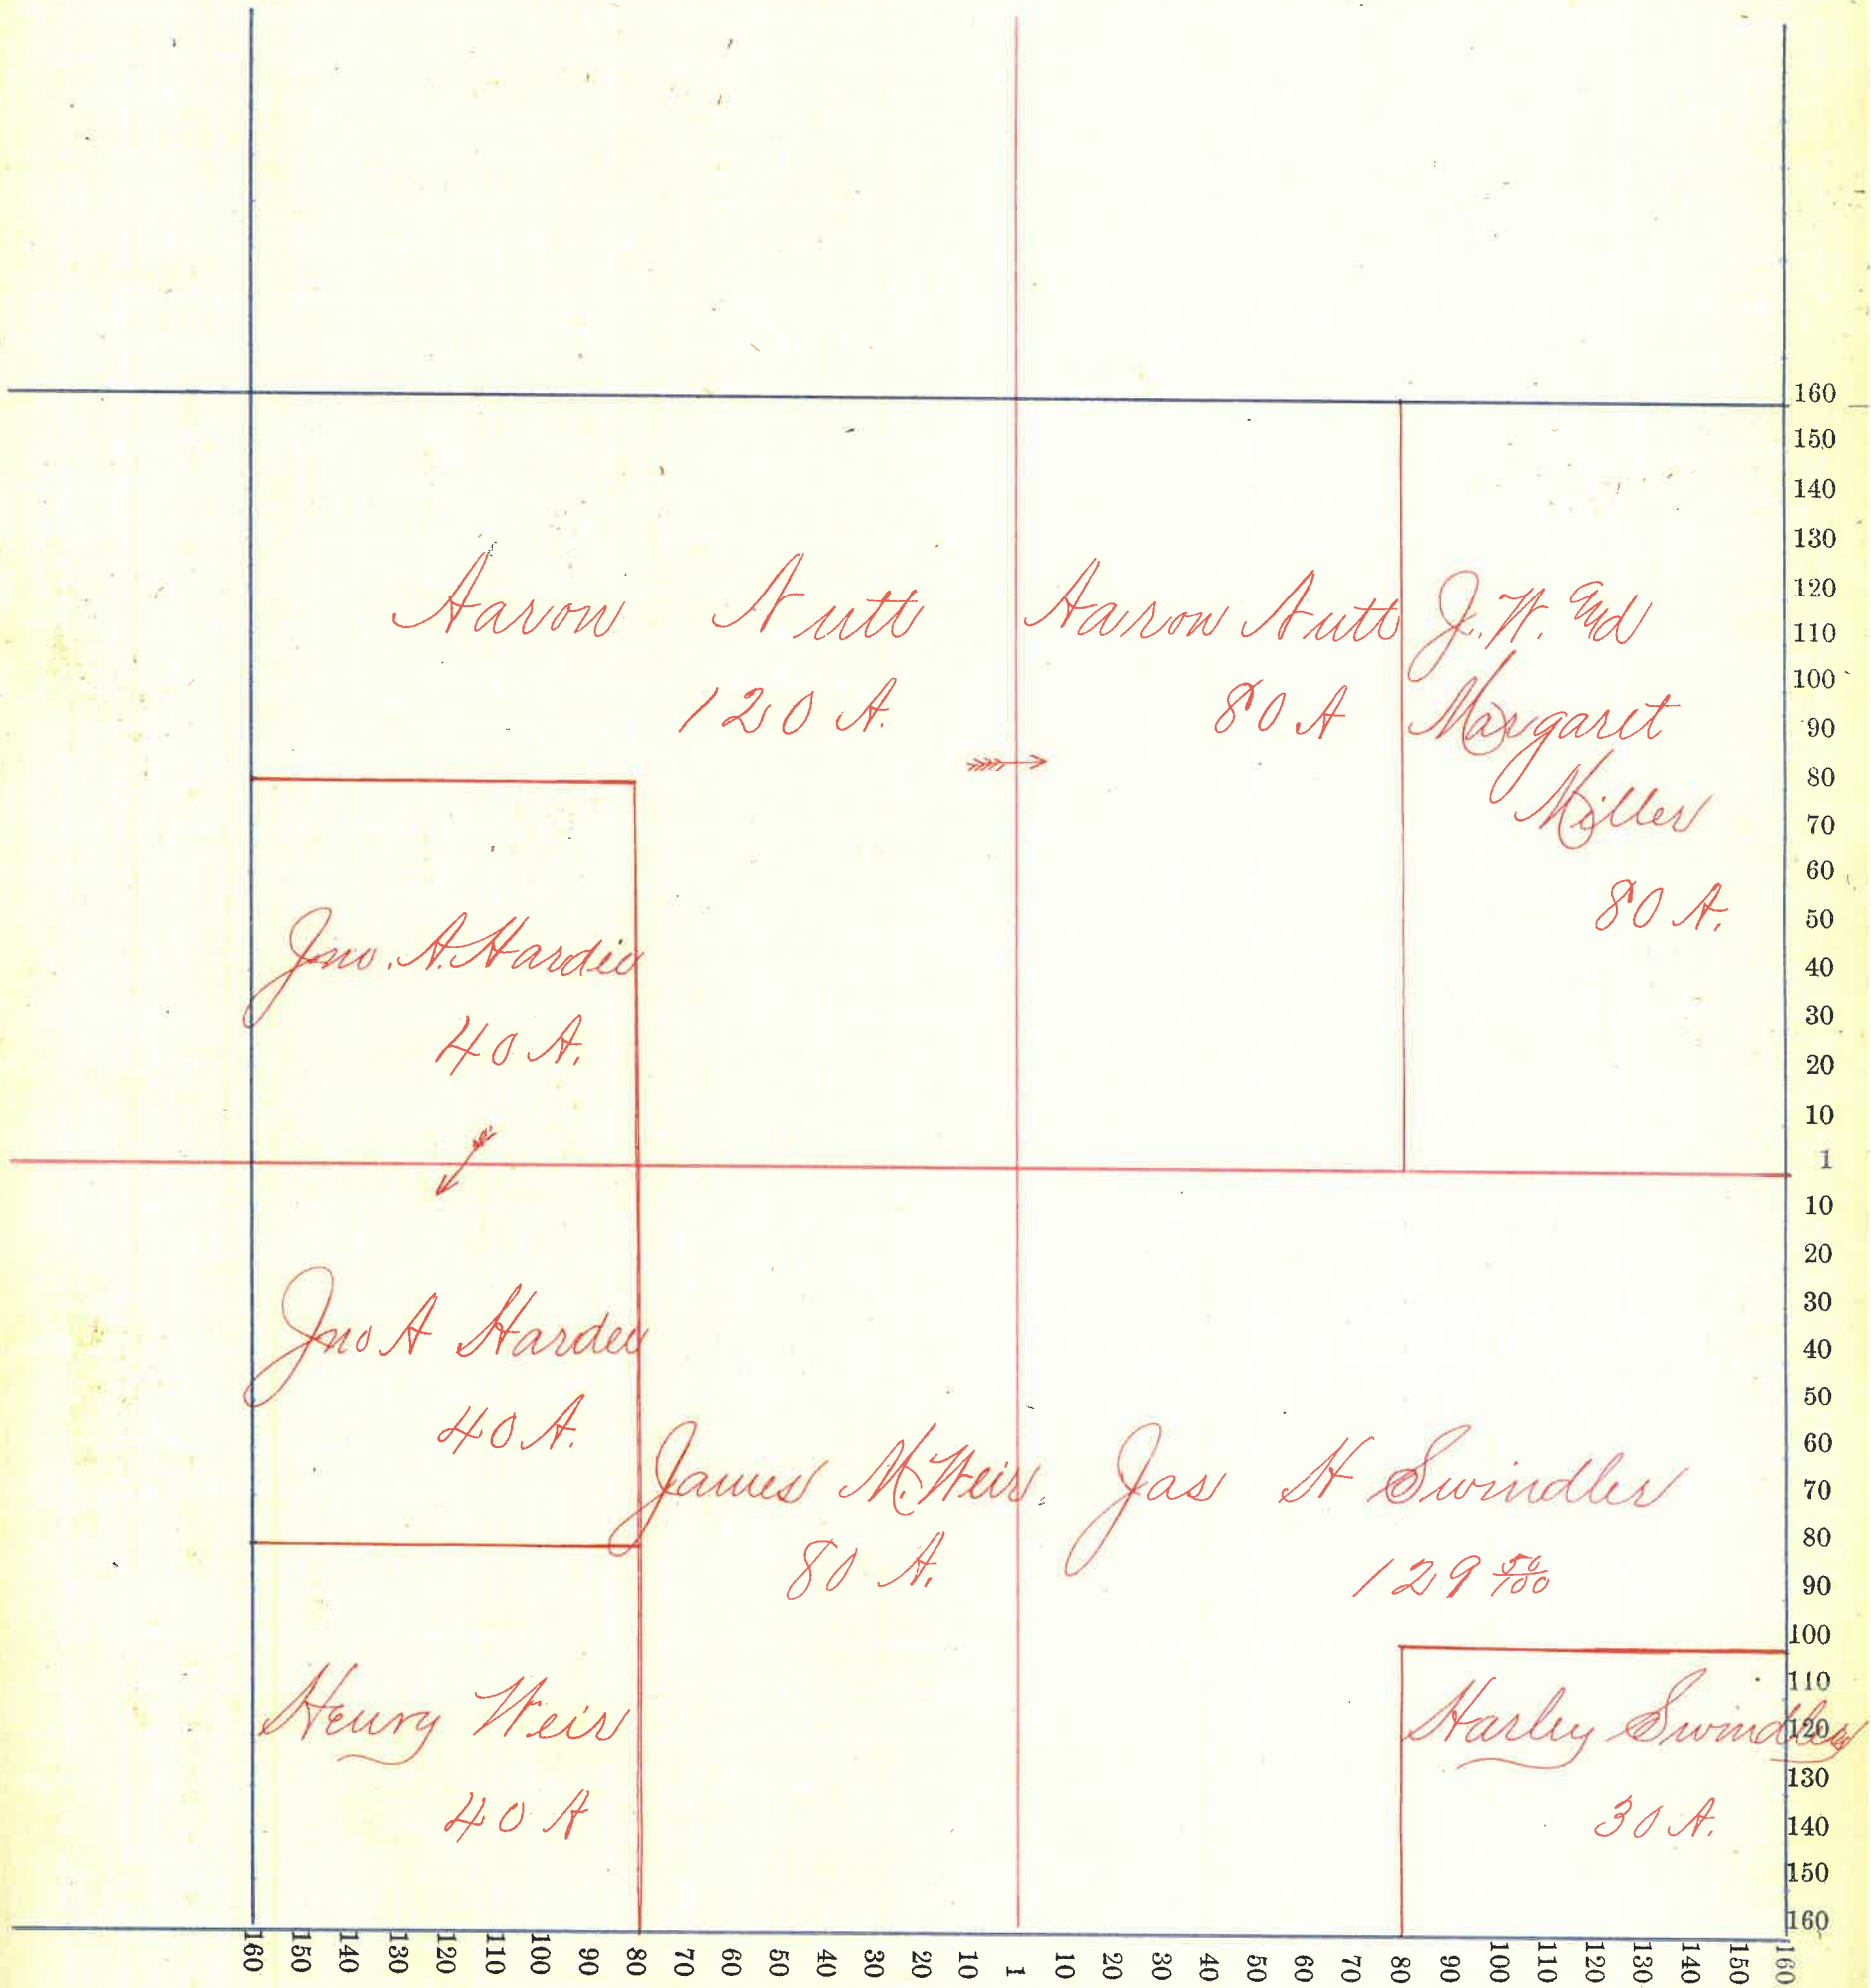 Aaron Nutt
120 A.
Aaron Nutt
80 A
J. W. And
Margaret
Miller
80 A.
Jno. A. Hardin
40 A.
Jno A Harden
40 A.
James M. Weir.
80 A.
Jas H Swindler
129 50/100
Henry Weir
40 A
Harley Swindler
30 A.
160
150
140
130
120
110
100
90
80
70
60
50
40
30
20
10
1
10
20
30
40
50
60
70
80
90
100
110
120
130
140
150
160
160 150 140 130 120 110 100 90 80 70 60 50 40 30 20 10 1 10 20 30 40 50 60 70 80 90 100 110 120 130 140 150 160